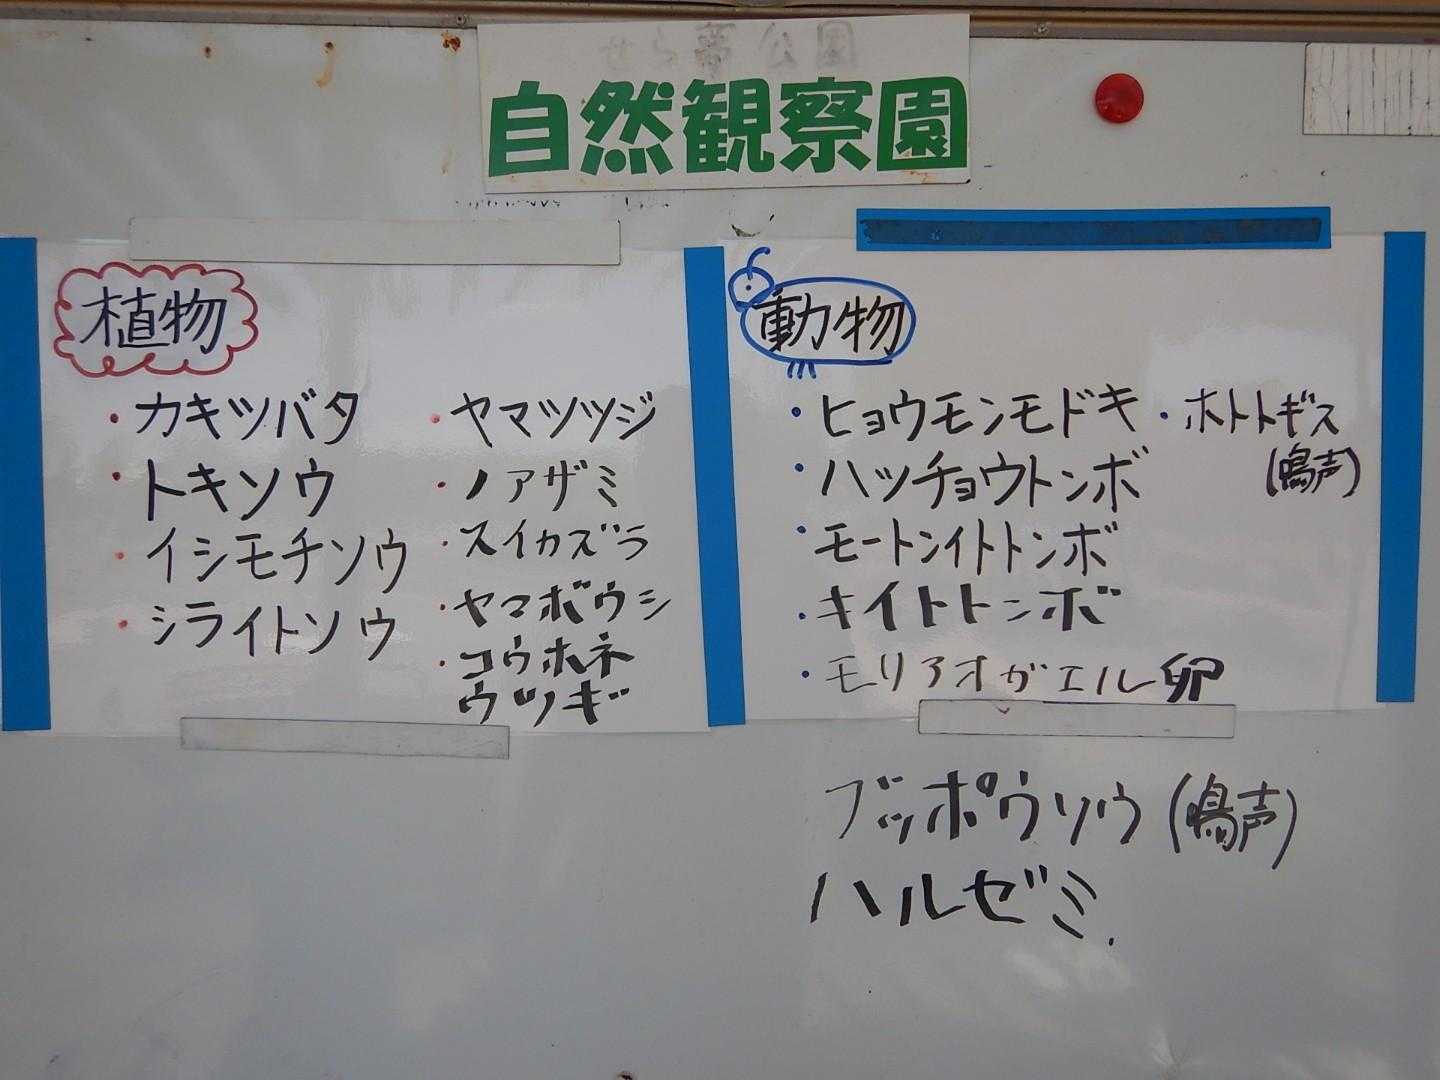 自然観察園
植物
・カキツバタ
・トキソウ
・イシモチソウ
・シライトソウ
・ヤマツツジ
・ノアザミ
・スイカズラ
・ヤマボウシ
・コウホネ
ウツギ
動物
・ヒョウモンモドキ
・ハッチョウトンボ
・モートンイトトンボ
・キイトトンボ
・モリアオガエル卵
・ホトトギス
(鳴声)
ブッポウソウ(鳴声)
ハルゼミ.